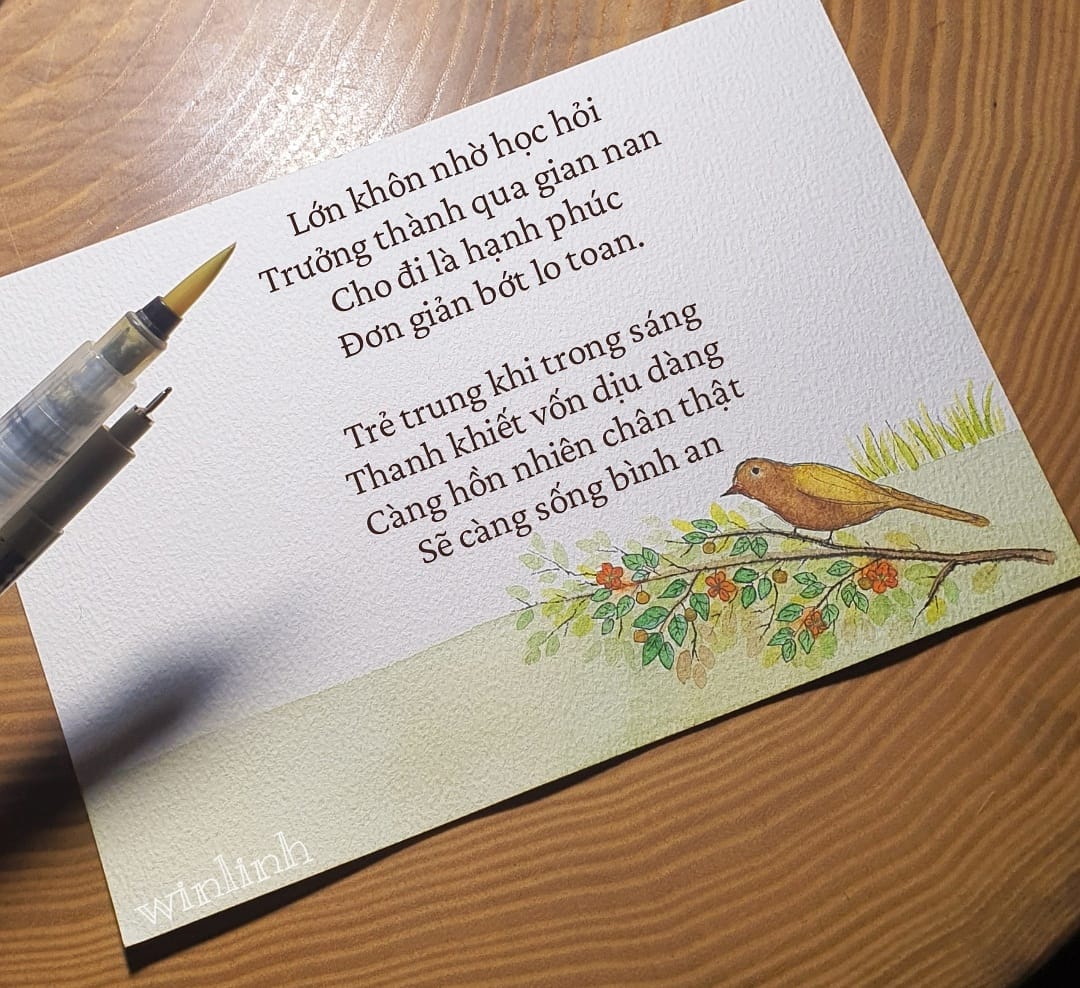 Lớn khôn nhờ học hỏi
Trưởng thành qua gian nan
Cho đi là hạnh phúc
Đơn giản bớt lo toan.
Trẻ trung khi trong sáng
Thanh khiết vốn dịu dàng
Càng hồn nhiên chân thật
Sẽ càng sống bình an
winlinh